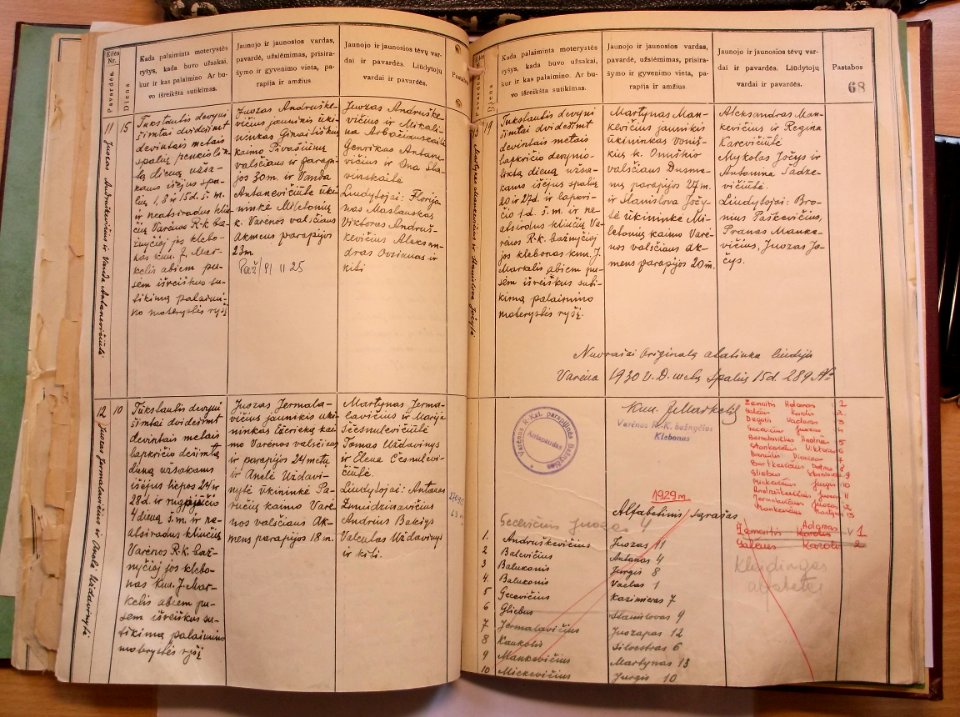 Kada palaiminta moterystės
ryšys, kada buvo užsakai,
kur ir kas palaimino. Ar bu-
vo išreikšta sutikimas.
Jaunojo ir jaunosios vardas,
pavardė, užsiėmimas, prisira-
šymo ir gyvenimo vieta, pa-
rapija ir amžius
Jaunojo ir jaunosios tėvų var-
dai ir pavardė. Liudytojų
vardai ir pavardės.
Pastabos
Diena
11
Juozas Andruškevičius ir Vanda Antanevičiūtė
15
Tūkstantis devyni
šimtai dvidešimt
devintais metais
spalių penkiolik-
tą dieną užsa-
kams išėjus spa-
lių 1, 8 ir 15 d. š. m.
ir neatsiradus kliū-
čių Varėnos R.k. baž-
nyčioj jos klebo-
nas kun. J. Mar-
kelis abiem pu-
sėm išreiškus su-
tikimą palaimi-
no moterystės ryšį
Juozas Andruške-
vičius jaunikis ūki-
ninkas
kaimo Pivašiūnų
valsčiaus ir parapi-
jos 30 m. ir Vanda
Antanevičiūtė ūki-
ninkė Milėtonių
k. Varėnos valsčiaus
Akmens parapijos
23 m.
Juozas Andruške-
vičius ir Mikalina
Arbačiauskaitė
Henrikas Antana-
vičius ir Ona Sla-
vinskaitė
Liudytojai: Florijo-
nas Maslauskas
Viktoras Andruš-
kevičius Aleksan-
dras ir
kiti
12
Juozas Jermalavičius ir Anelė Uždavinytė
10
Tūkstantis devyni
šimtai dvidešimt
devintais metais
lapkričio dešimtą
dieną užsakams
išėjus liepos 24 ir
28 d. ir rugpjūčio
4 dieną š. m. ir ne-
atsiradus kliūčių
Varėnos R.k. baž-
nyčioj jos klebo-
nas kun. J. Mar-
kelis abiem pu-
sėm išreiškus su-
tikimą palaimino
moterystės ryšį
Juozas Jermala-
vičius jaunikis ūki-
ninkas kai-
mo Varėnos valsčiaus
ir parapijos 24 metų
ir Anelė Uždavi-
nytė ūkininkė Pa-
kaimo Varė-
nos valsčiaus Ak-
mens parapijos 18 m.
Martynas Jerma-
lavičius ir Marija
Česnulevičiūtė
Tomas Uždavinys
ir Elena Česnulevi-
čiūtė
Liudytojai: Antanas
Andrius Bakšys
Vaculas Uždavinys
ir kiti.
Kada palaiminta moterystės
ryšys, kada buvo užsakai,
kur ir kas palaimino. Ar bu-
vo išreikšta sutikimas.
Jaunojo ir jaunosios vardas,
pavardė, užsiėmimas, prisira-
šymo ir gyvenimo vieta, pa-
rapija ir amžius
Jaunojo ir jaunosios tėvų var-
dai ir pavardė. Liudytojų
vardai ir pavardės.
Pastabos
68
Diena
13
Martynas Mankevičius ir Stanislova Jočytė
19
Tūkstantis devyni
šimtai dvidešimt
devintais metais
lapkričio devynio-
liktą dieną užsa-
kams išėjus spalių
20 ir 27 d. ir lapkri-
čio 1 d. š. m. ir ne-
atsiradus kliūčių Va-
rėnos R.k. bažnyčioj
jos klebonas kun. J.
Markelis abiem pu-
sėm išreiškus suti-
kimą palaimino
moterystės ryšį.
Martynas Man-
kevičius jaunikis
ūkininkas
k. Onuškio
valsčiaus Dusme-
nų parapijos 27 m.
ir Stanislova Jočy-
tė ūkininkė Mi-
lėtonių kaimo Varė-
nos valsčiaus Ak-
mens parapijos 20 m.
Aleksandras Man-
kevičius ir Regina
Karevičiūtė
Mykolas Jočys ir
Antanina Padze-
vičiūtė
Liudytojai: Bro-
nius Paškevičius,
Pranas Manka-
vičius, Juozas Jo-
čys.
Nuorašai originalą atatinka liudyju
Varėna 1930 m. Spalių 15 d. 289 №
Kun. J Markelis
Varėnos R.-K. bažnyčios
Klebonas
Varėnos R. Kat. parapijinės Bažnyčios
Antspaudas
1929 m.
Alfabetinis Sąrašas
1. Andruškevičius Juozas 11
2 Balevičius Antanas 4
3 Balukonis Jurgis 8
4. Balukonis Vaclas 1
5 Gecevičius Kazimieras 7
6 Gliebus Stanislovas 9
7 Jermalavičius Juozapas 12
8 Kaukolis Silvestras 6
9 Mankevičius Martynas 13
10 Mickevičius Jurgis 10
Adomas
Klaidingas
alfabetas